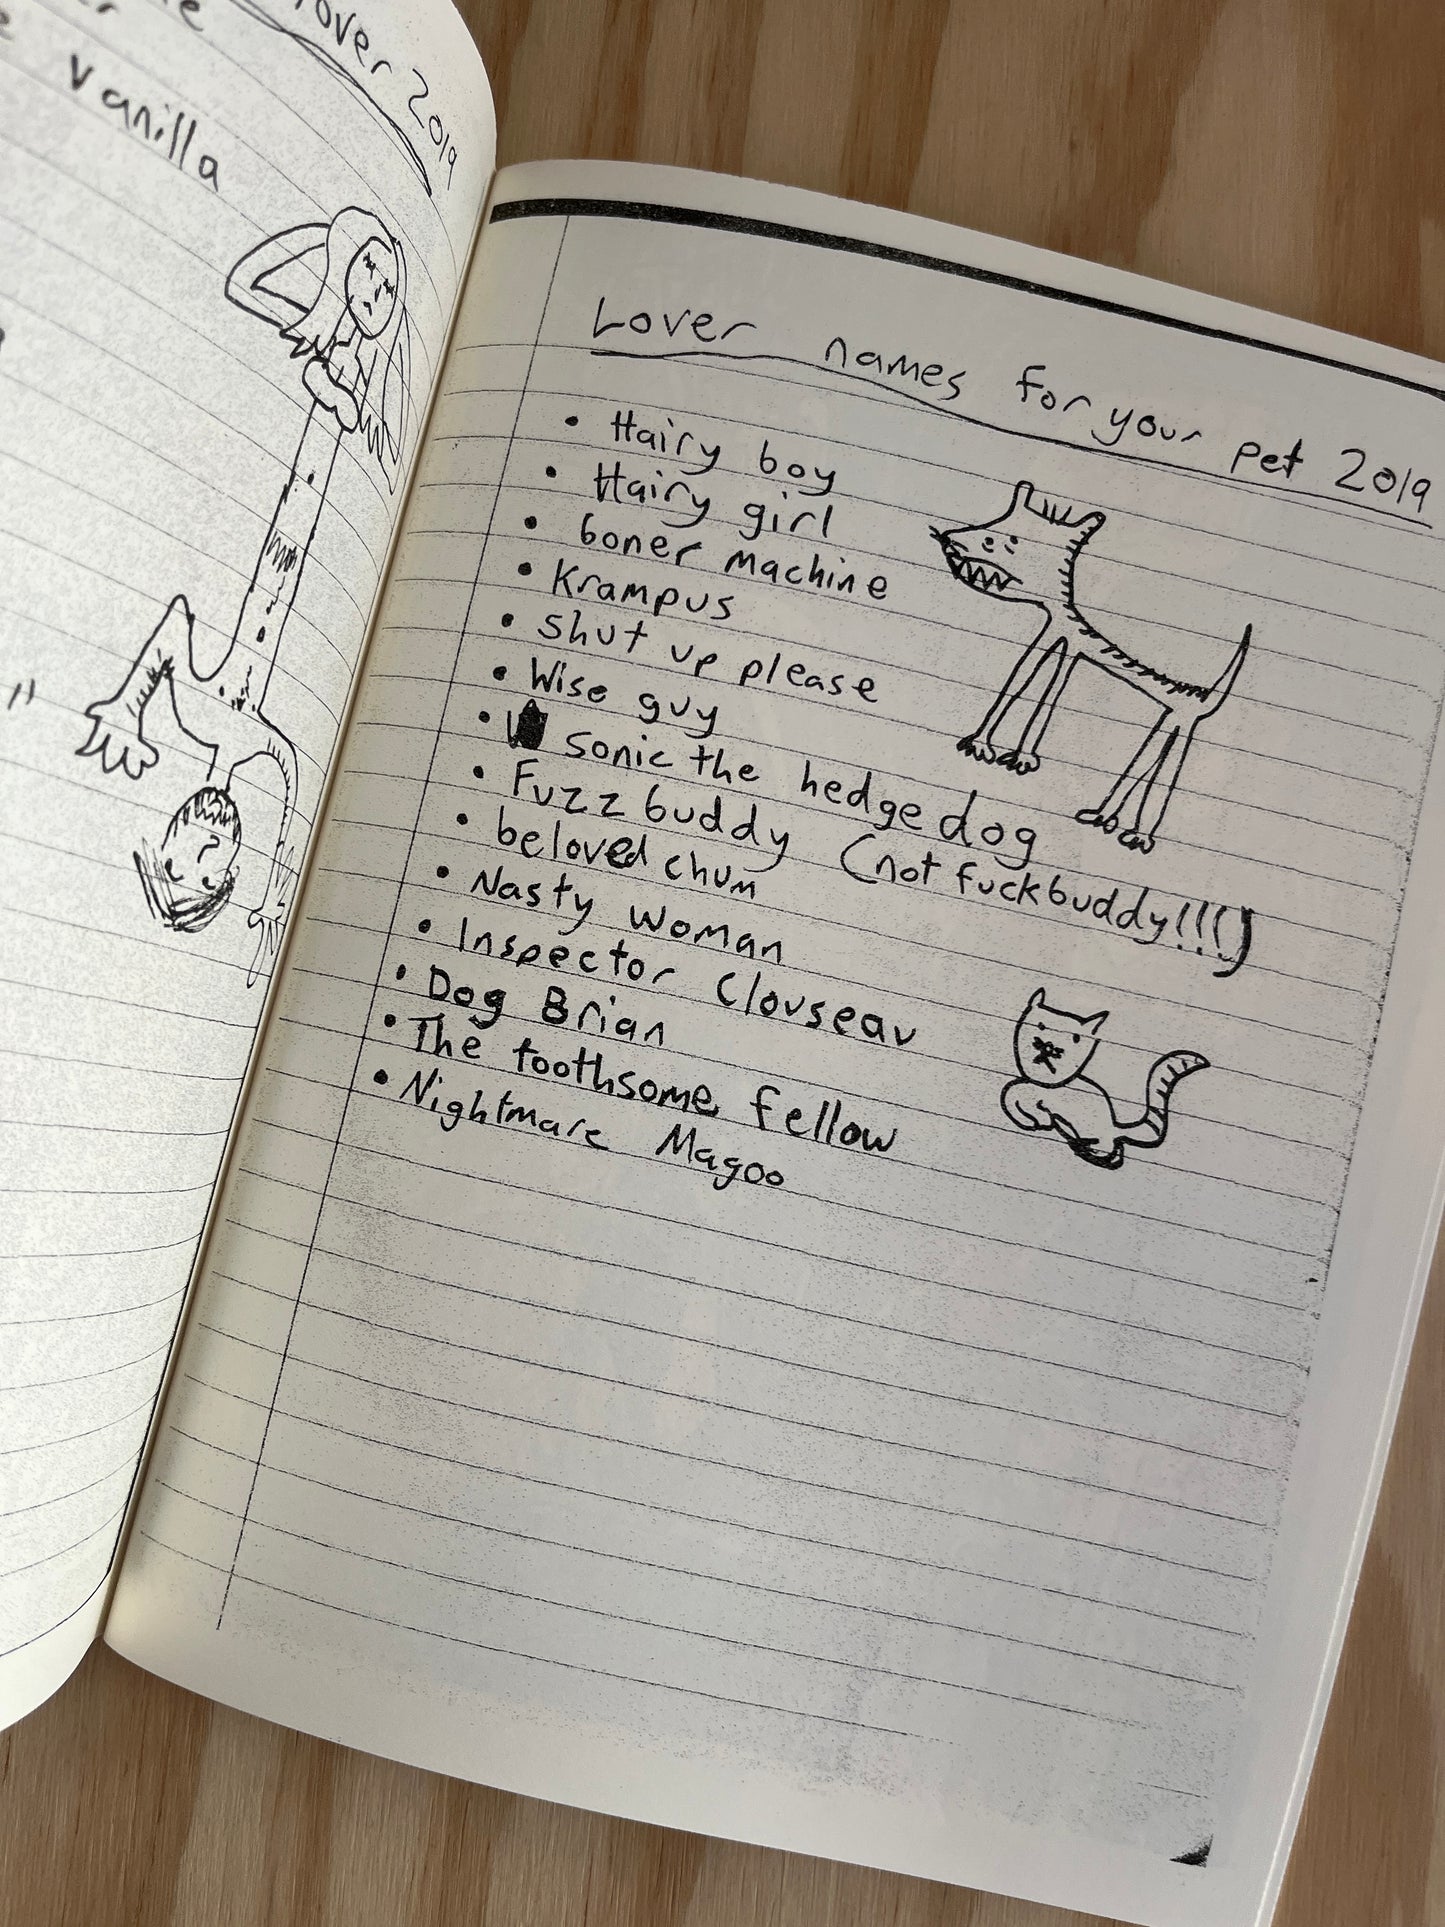 lover 2019
vanilla
"
Lover names for your pet 2019
• Hairy boy
• Hairy girl
• boner machine
• Krampus
• Shut up please
• Wise guy
• sonic the hedgedog
• Fuzz buddy (not fuckbuddy!!!)
• beloved chum
• Nasty woman
• Inspector Clouseau
• Dog Brian
• The toothsome fellow
• Nightmare Magoo